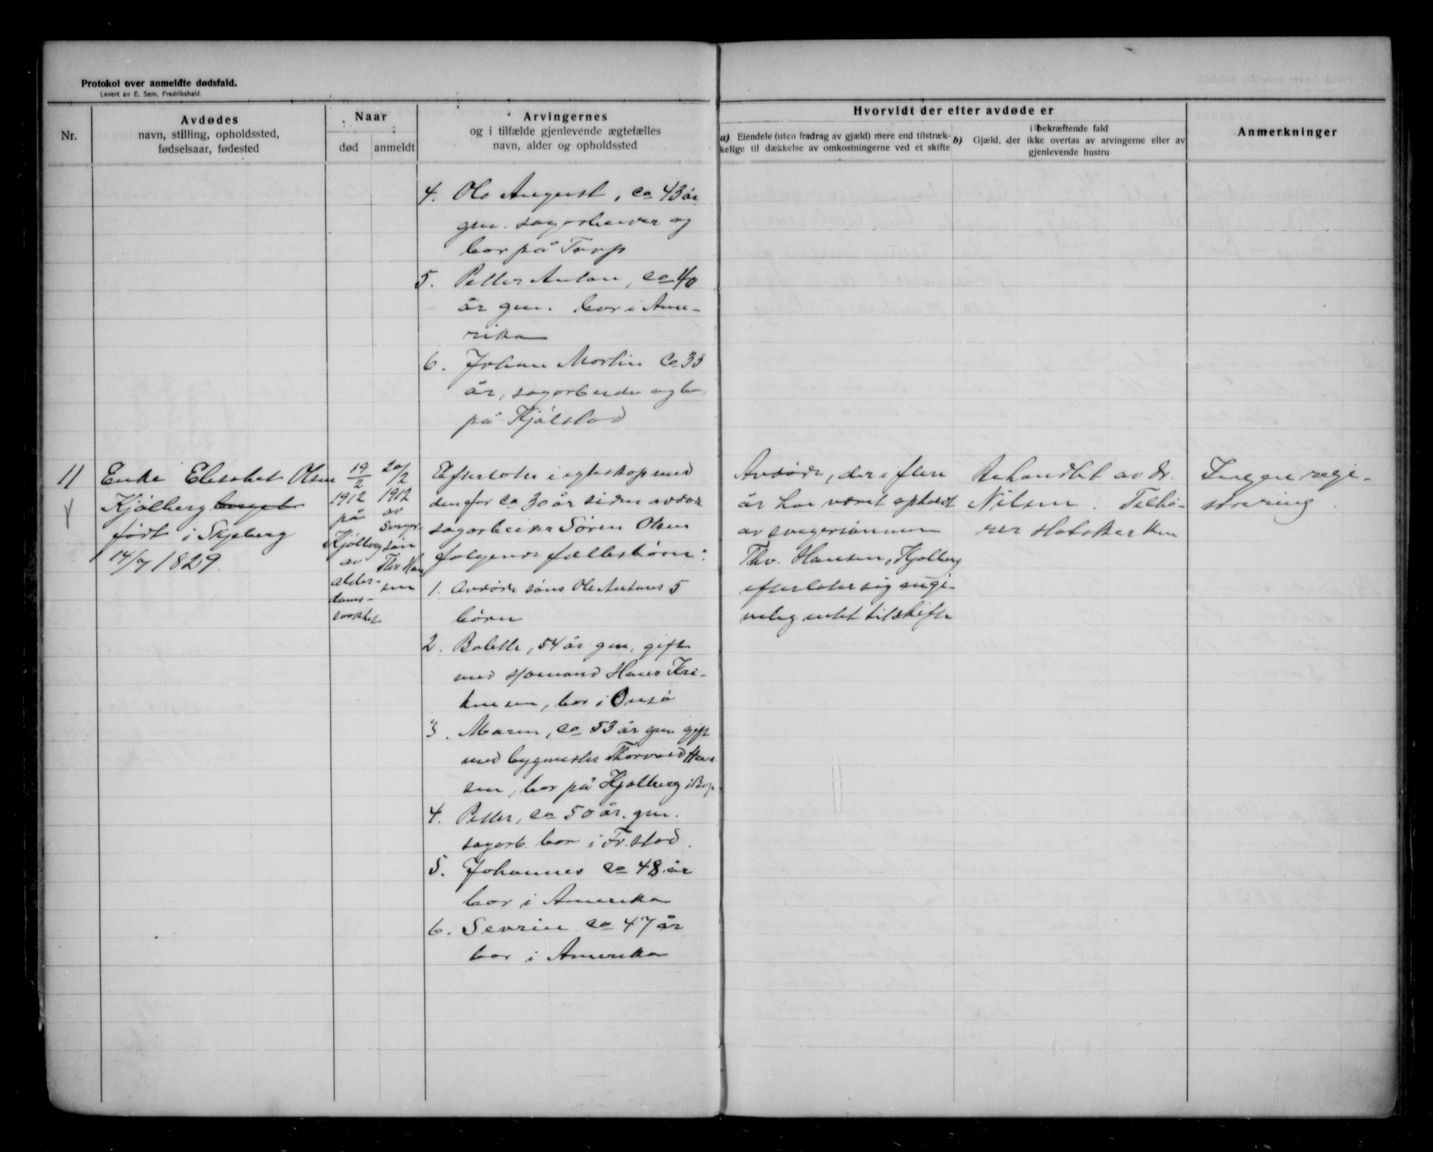 Protokol over anmeldte dødsfald.
Levert av E. Sem, Fredrikshald.
Nr.
Avdødes
navn, stilling, opholdssted,
fødselsaar, fødested
Naar
død
anmeldt
Arvingernes
og i tilfælde gjenlevende ægtefælles
navn, alder og opholdssted
Hvorvidt der efter avdøde er
a) Eiendele (uten fradrag av gjæld) mere end tilstræk-
kelige til dækkelse av omkostningerne ved et skifte
i bekræftende fald
b) Gjæld, der ikke overtas av arvingerne eller av
gjenlevende hustru
Anmerkninger
4. Ole August, ca 43 år
gm. sagarbeider og
bor på Torp
5. Petter Anton, ca 40
år gm. bor i Ame-
rika
6. Johan Martin ca 33
år, sagarbeider og bor
på Kjølstad
11
Enke Elisabet Olsen
Kjølberg
født i Skjeberg
14/7 1829.
19/2
1912
på
Kjølberg
av
alder-
doms-
svakhet
20/2
1912
av
sviger-
søn
Thv. Han
sen
Efterlater i egteskap med
den for ca 30 år siden avdøde
sagarbeider Søren Olsen
følgende fællesbørn:
1. Avdøde søns Ole Antons 5
børn
2. Bolette, 54 år gm. gift
med sjømand Hans Kri-
stensen, bor i Onsø
3. Maren, ca 53 år gm gift
med bygmester Thorvald Han
sen, bor på Kjølberg i
4. Petter, ca 50 år. gm.
sagarb. bor i Fr.stad.
5. Johannes ca 48 år
bor i Amerika
6. Sevrin ca 47 år
bor i Amerika
Avdøde, der i flere
år har været opholdt
av svigersønnen
Thv. Hansen, Kjølberg
efterlater sig angi-
velig intet til skifte
Behandlet av dr.
Nilsen. Tilhø-
rer statskirken
Ingen regi-
strering.